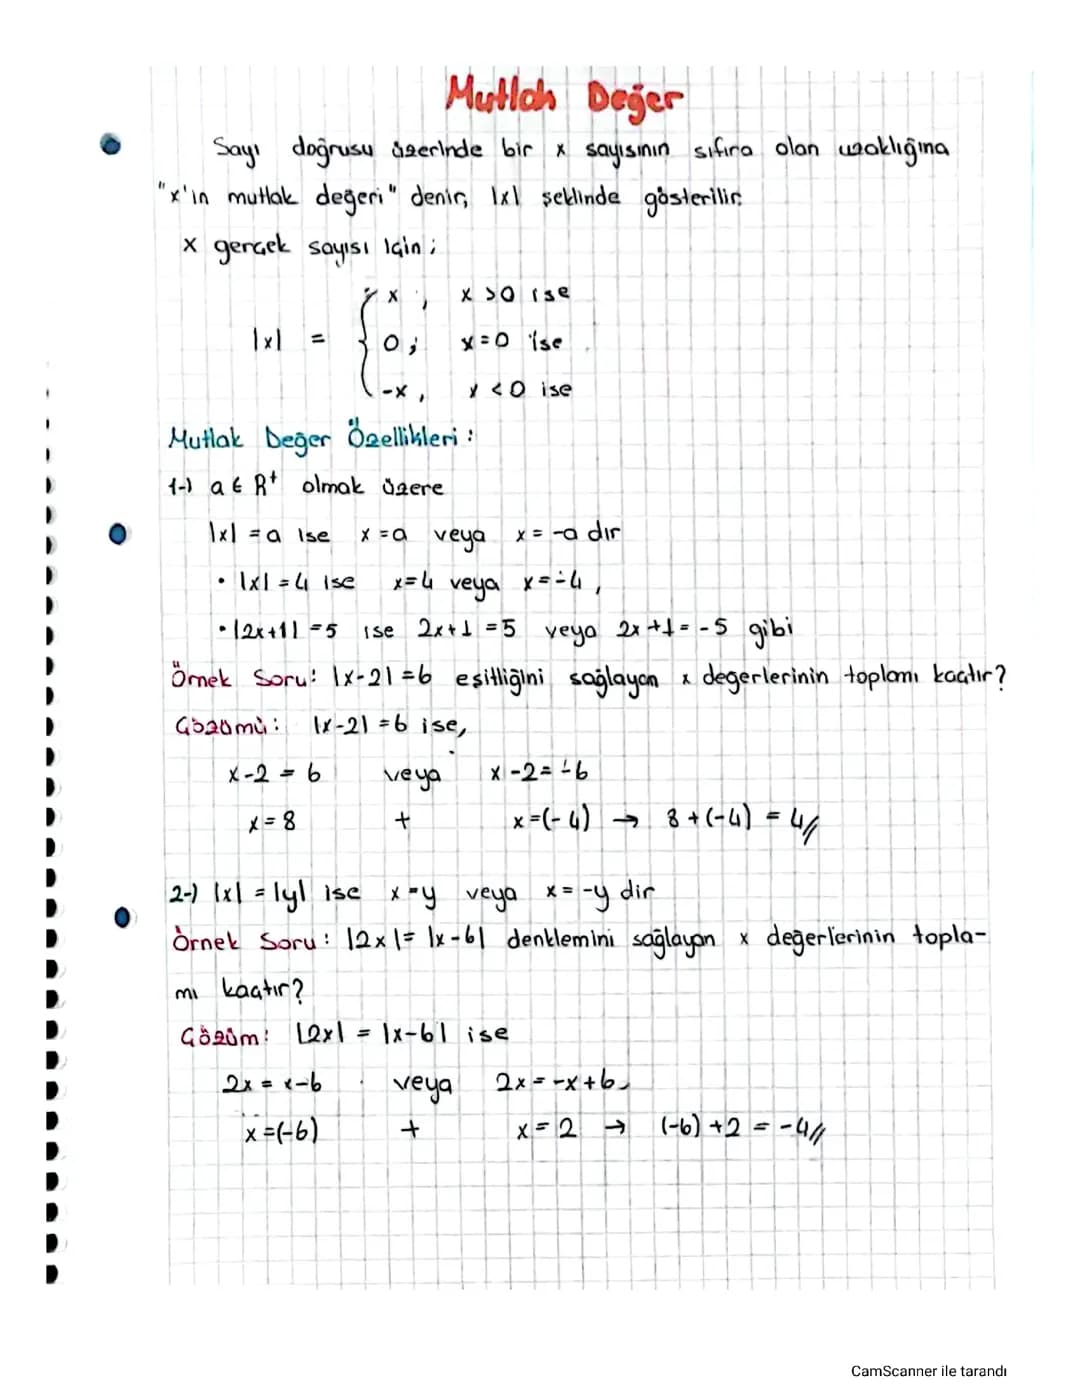 Mutlak Değer
Sayı doğrusu üzerinde bir x sayısının sıfıra olan uzaklığına
"x'in mutlak değeri" denir, |x| şeklinde gösterilir.
x gerçek sayısı için ;
x , x >0 ise
|x| = { 0 ; x = 0 ise
-x , x < 0 ise
Mutlak Değer Özellikleri :
1-) a ∈ R⁺ olmak üzere
|x| = a ise x = a veya x = -a dır
• |x| = 4 ise x=4 veya x=-4 ,
• |2x+1| =5 ise 2x+1 =5 veya 2x+1 = -5 gibi
Örnek Soru: |x-2| =6 eşitliğini sağlayan x degerlerinin toplamı kaçtır?
Çözümü : |x-2| =6 ise,
x-2 = 6 veya x-2= -6
x = 8 + x =(-4) → 8 +(-4) = 4//
2-) |x| = |y| ise x=y veya x= -y dir
Örnek Soru : |2x|= |x-6| denklemini sağlayan x değerlerinin topla-
mı kaçtır?
Çözüm: |2x| = |x-6| ise
2x = x-6 veya 2x = -x+6
x =(-6) + x = 2 → (-6) +2 = -4//
CamScanner ile tarandı